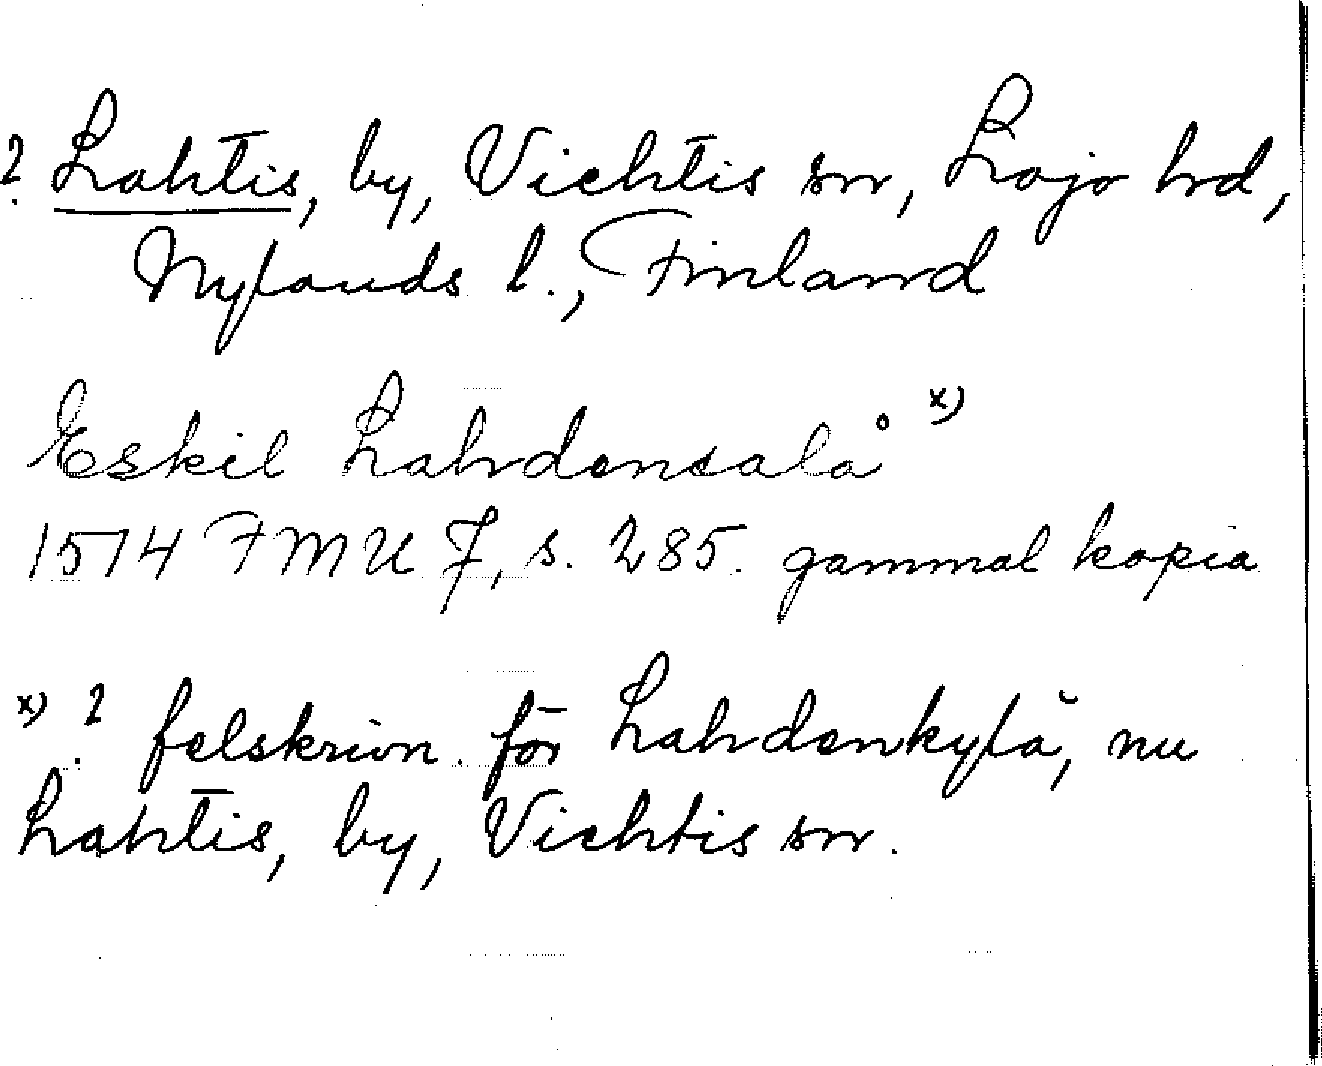 ? Lahtis, by, Vichtis sn, Lojo hd,
Nylands l., Finland
Eskil Lahdensalå x)
1514 FMU 7, s. 285. gammal kopia
x) ? felskrivn. för Lahdenkylä, nu
Lahtis, by, Vichtis sn.